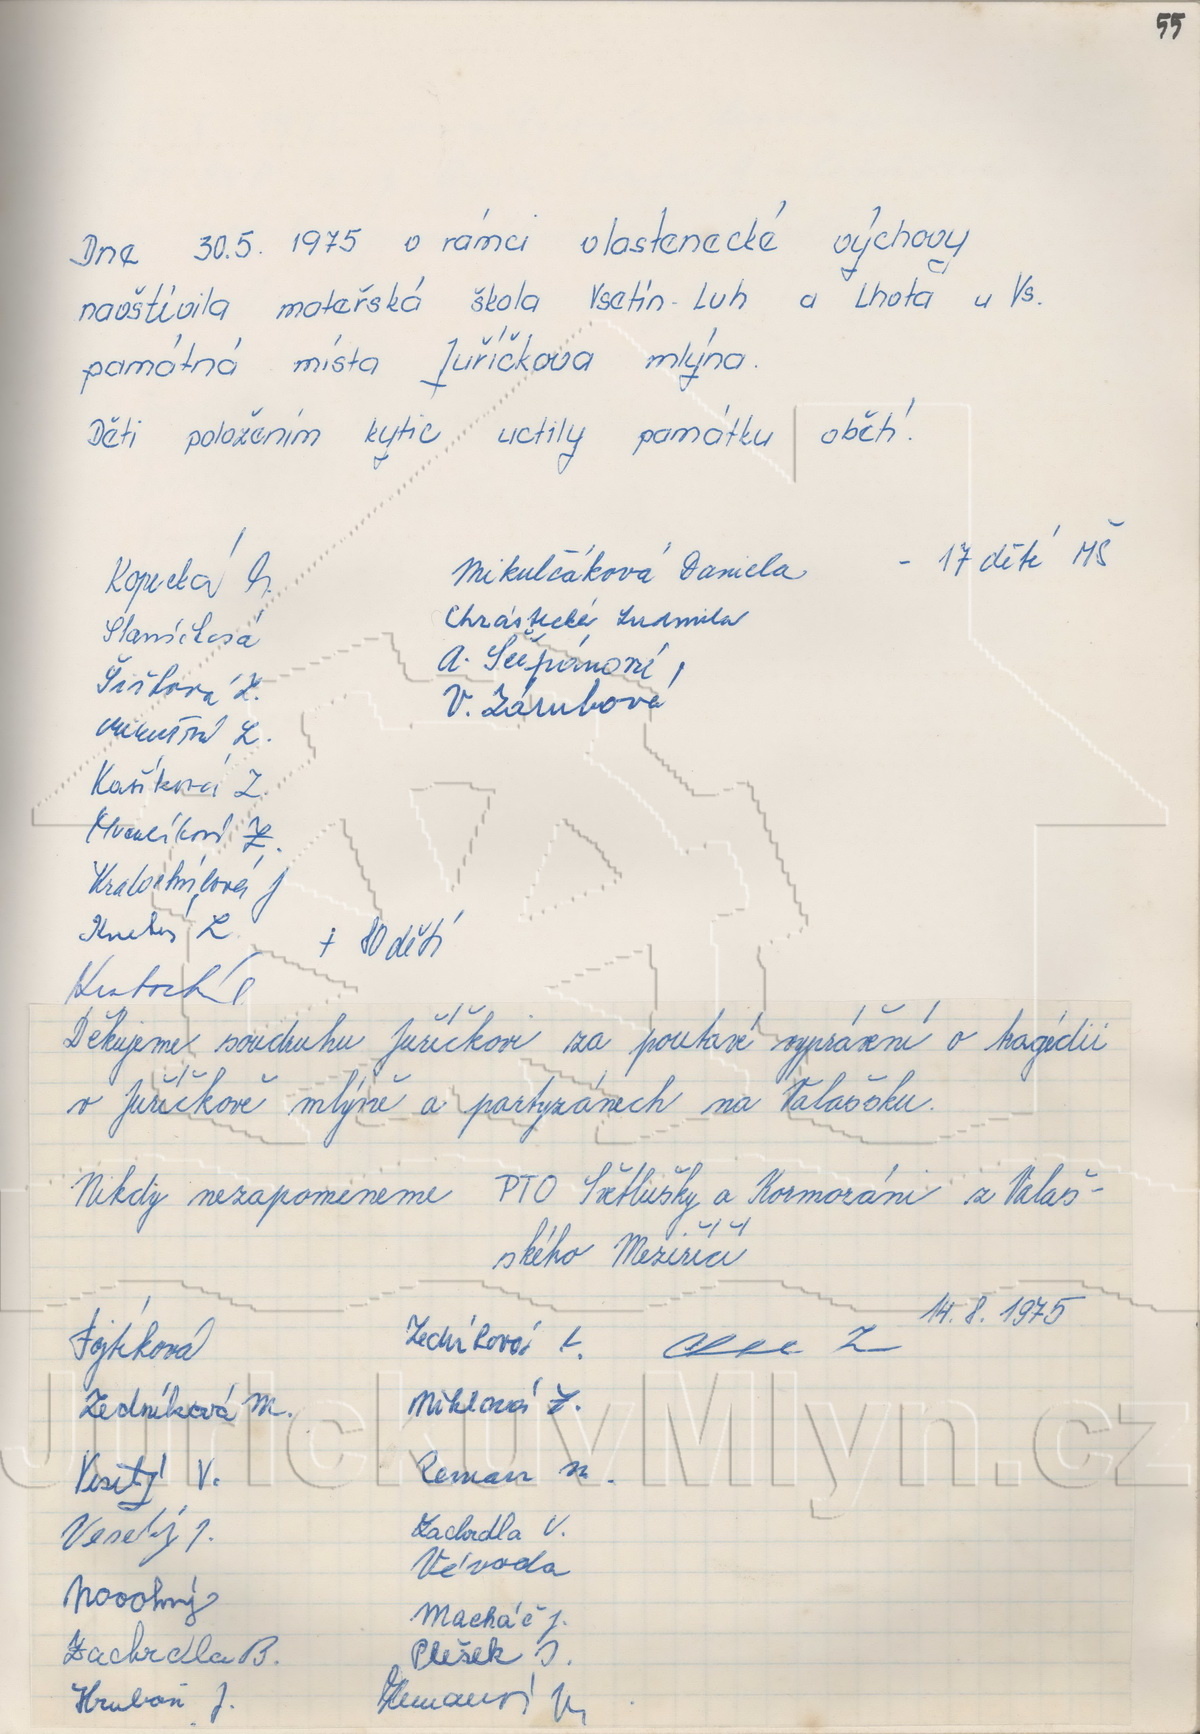 55
Dne 30.5. 1975 v rámci vlastenecké výchovy
navštívila mateřská škola Vsetín - Luh a Lhota u Vs.
památná místa Juříčkova mlýna.
Děti položením kytic uctily památku obětí.
Kopecká
Šišková Z.
Kašíková Z.
Kratochvílová J
+ 80 dětí
Mikulčáková Daniela - 17 dětí MŠ
Chrástecká Ludmila
A. Štěpánová,
V. Zárubová
Děkujeme soudruhu Juříčkovi za poutavé vyprávění o tragédii
v Juříčkově mlýně a partyzánech na Valašsku.
Nikdy nezapomeneme PTO Světlušky a Kormoráni z Valaš-
ského Meziříčí
14. 8. 1975
Fojtíková
Zedníková M.
Veselý V.
Veselý J.
Novotný
Zachrdla B.
Hruboň J.
Miklová Z.
Zeman M.
Zachrdla V.
Vévoda
Macháč J.
Plešek J.
Zemanová
JurickuvMlyn.cz